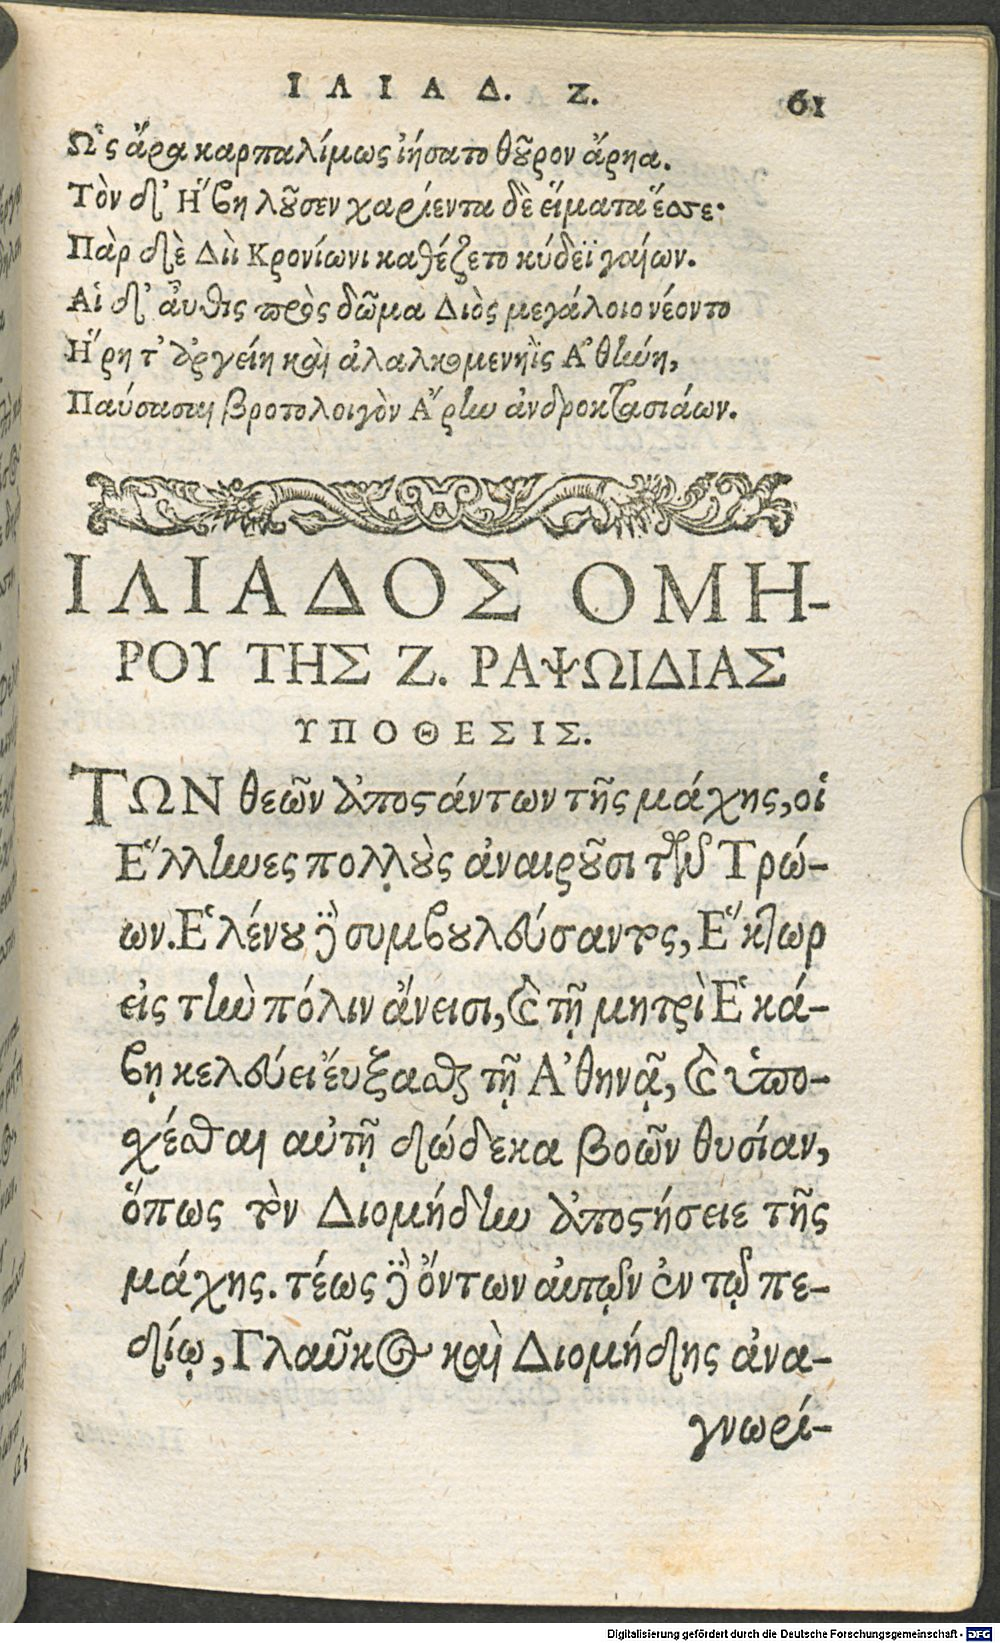 ΙΛΙΑΔ. Ζ. 61
Ὣς ἄρα καρπαλίμως ἰήσατο θοῦρον ἄρηα.
Τὸν δ' Ἥβη λοῦσεν χαρίεντα δὲ εἵματα ἕσσε·
Πὰρ δὲ Διὶ Κρονίωνι καθέζετο κύδεϊ γαίων.
Αἱ δ' αὖθις πρὸς δῶμα Διὸς μεγάλοιο νέοντο
Ἥρη τ' ἀργείη καὶ ἀλαλκομενηῒς Ἀθήνη,
Παύσασαι βροτολοιγὸν Ἄρην ἀνδροκτασιάων.
ΙΛΙΑΔΟΣ ΟΜΗ-
ΡΟΥ ΤΗΣ Ζ. ΡΑΨΩΙΔΙΑΣ
ΥΠΟΘΕΣΙΣ.
ΤΩΝ θεῶν ἀποστάντων τῆς μάχης, οἱ
Ἕλληνες πολλοὺς ἀναιροῦσι τῶν Τρώ-
ων. Ἑλένου δὲ συμβουλεύσαντος, Ἕκτωρ
εἰς τὴν πόλιν ἄνεισι, καὶ τῇ μητρὶ Ἑκά-
βῃ κελεύει εὔξασθαι τῇ Ἀθηνᾷ, καὶ ὑπο-
σχέσθαι αὐτῇ δώδεκα βοῶν θυσίαν,
ὅπως τὸν Διομήδην ἀποστήσειε τῆς
μάχης. τέως δὲ ὄντων αὐτῶν ἐν τῷ πε-
δίῳ, Γλαῦκος καὶ Διομήδης ἀνα-
γνωρί-
Digitalisierung gefördert durch die Deutsche Forschungsgemeinschaft - DFG